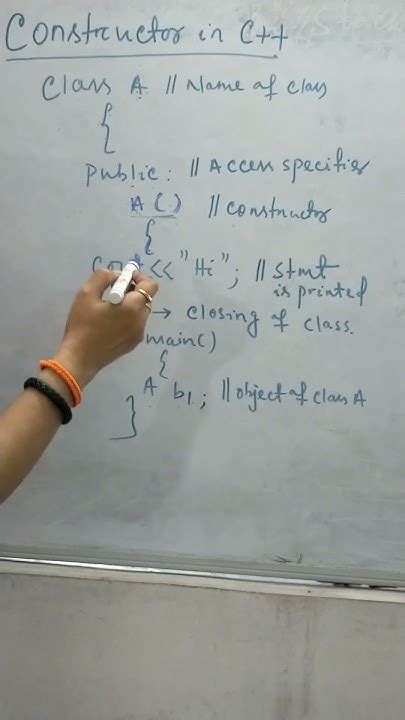 Constructor in C++
Class A // Name of class
{
Public : // Access specifier
A ( ) // constructor
{
Cout << "Hi" ; // Stmt
is printed
→ closing of class.
main()
{
A b1 ; // object of class A
}